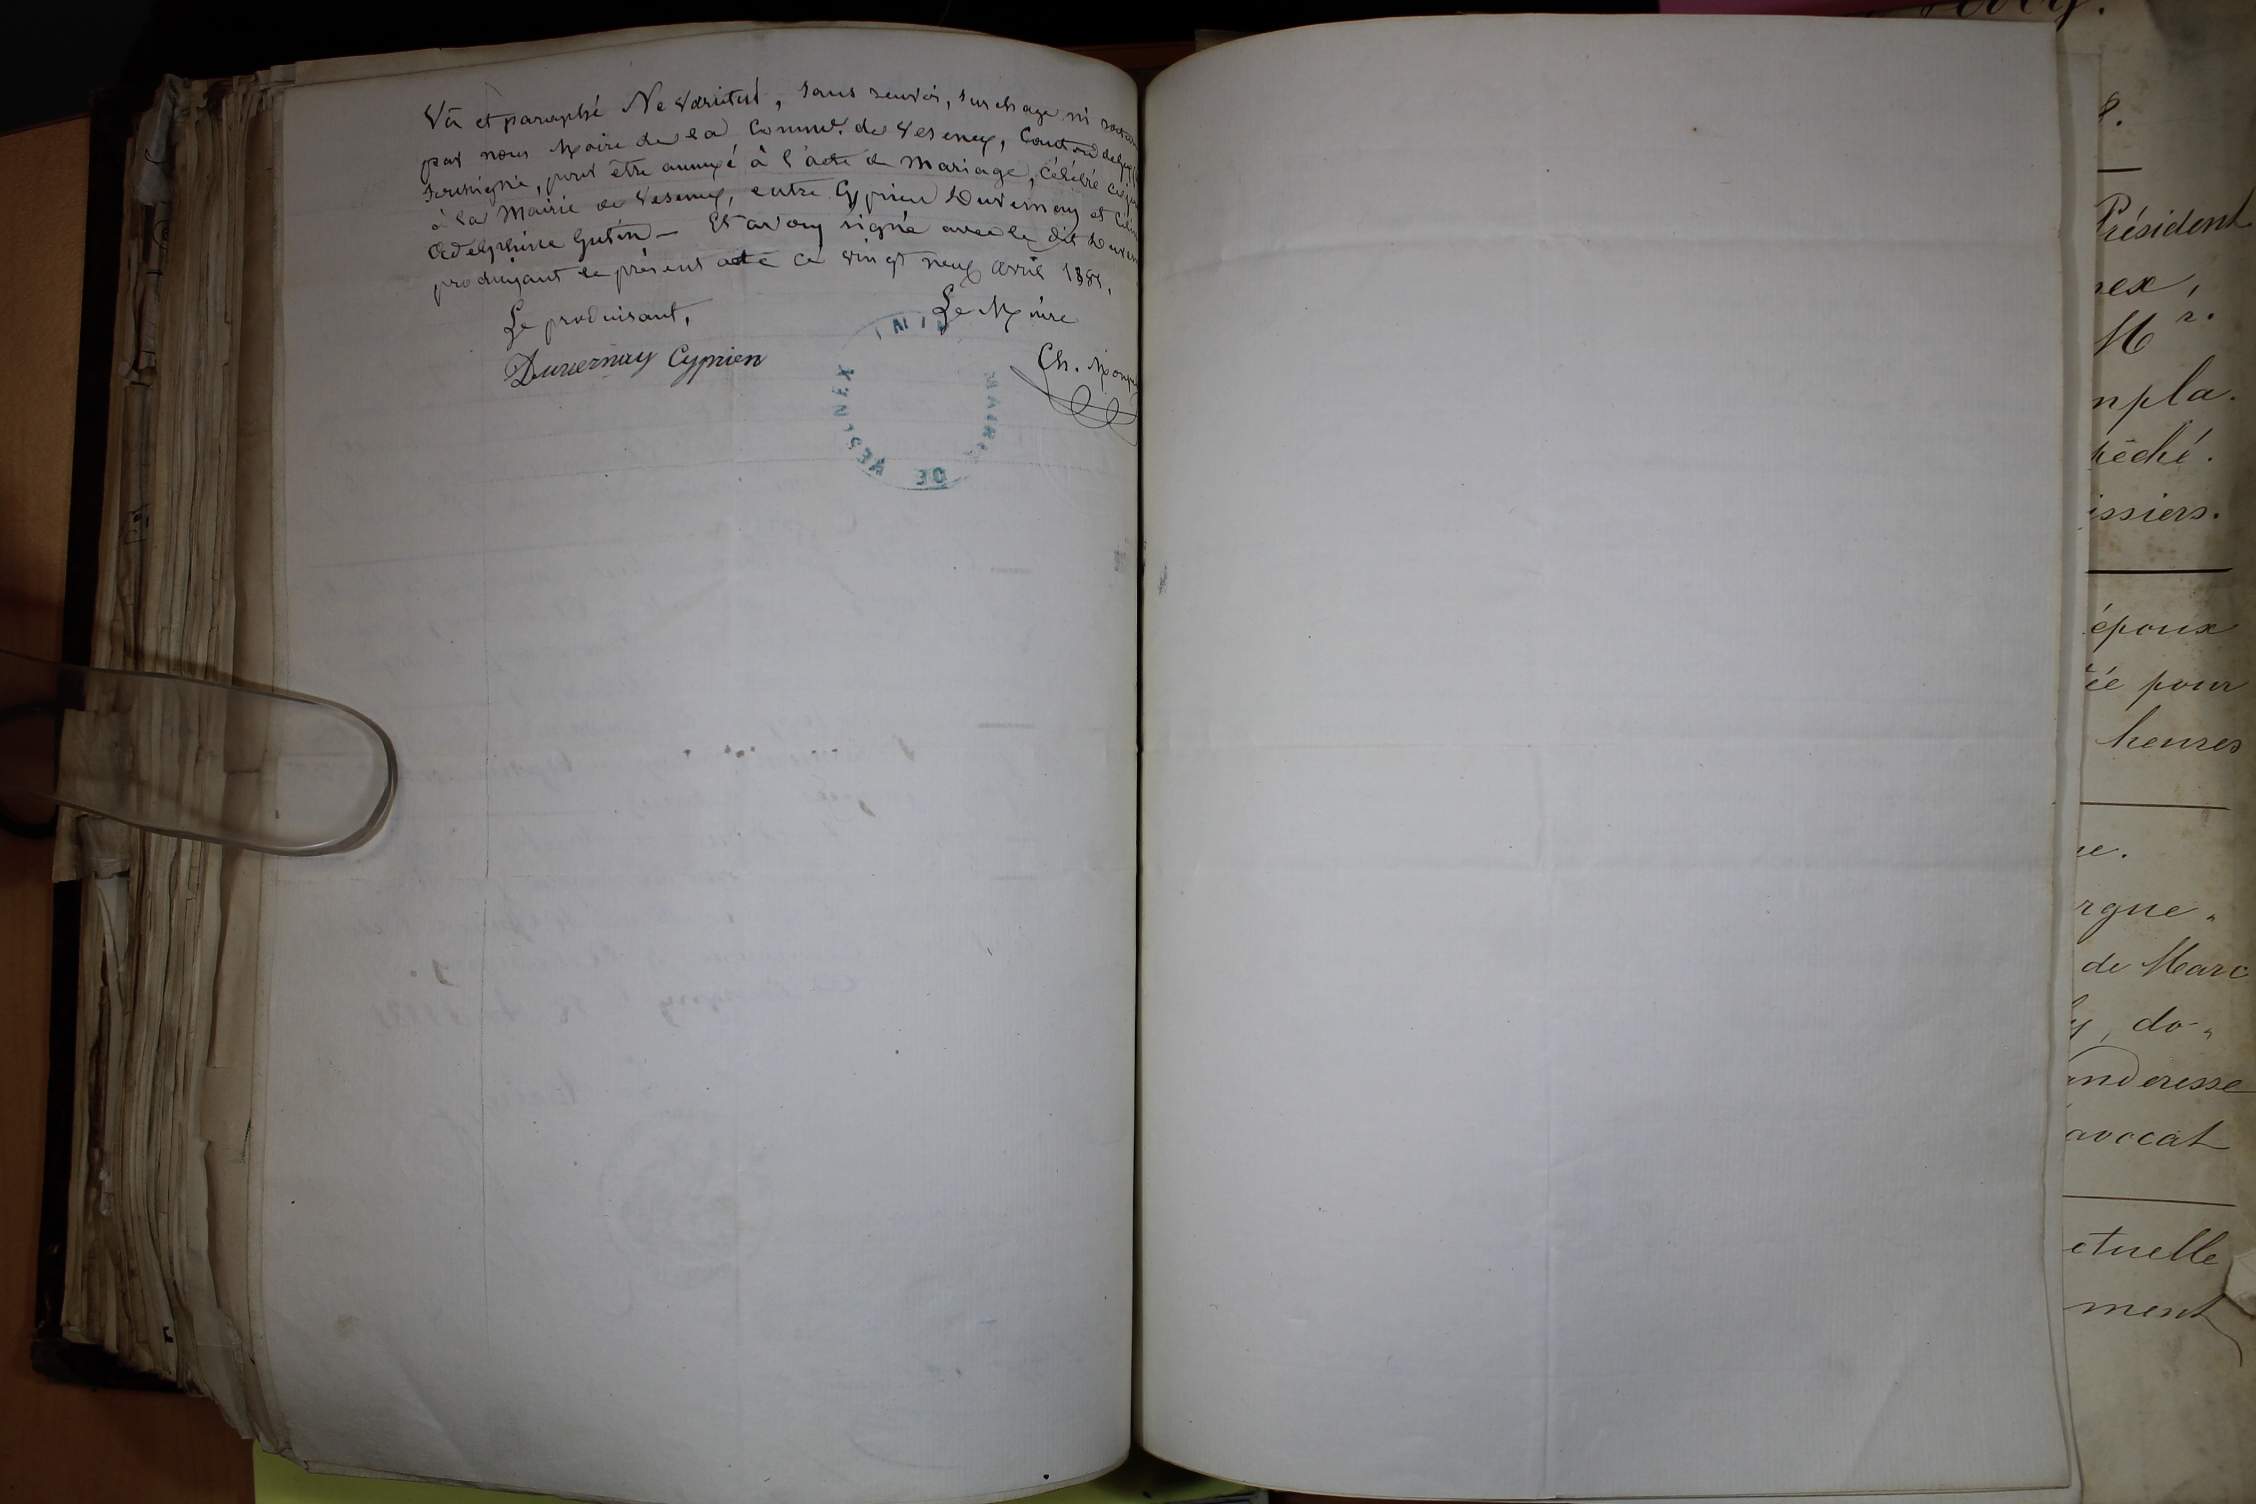 Vû et paraphé Ne Varietur, sans renvoi, surchage ni
par nous Maire de la Comm.ⁿᵉ de Vesenex, Canton de
soussigné, pour être annexé à l'acte de Mariage, célébré ce jour
à la Mairie de Vesenex, entre Cyprien Duvernay et
Adelphine Gutin — Et avons signé avec le dit
produisant le présent acte ce vingt neuf avril 1881.
Le produisant,
Le Maire
Duvernay Cyprien
Ch.
MAIRIE DE VESENEX
Président
nex,
Mʳ.
mpla.
pêché.
issiers.
époux
ée pour
heures
ne.
rgne.
de Marc
y, do-
anderesse
avocat
ctuelle
ment